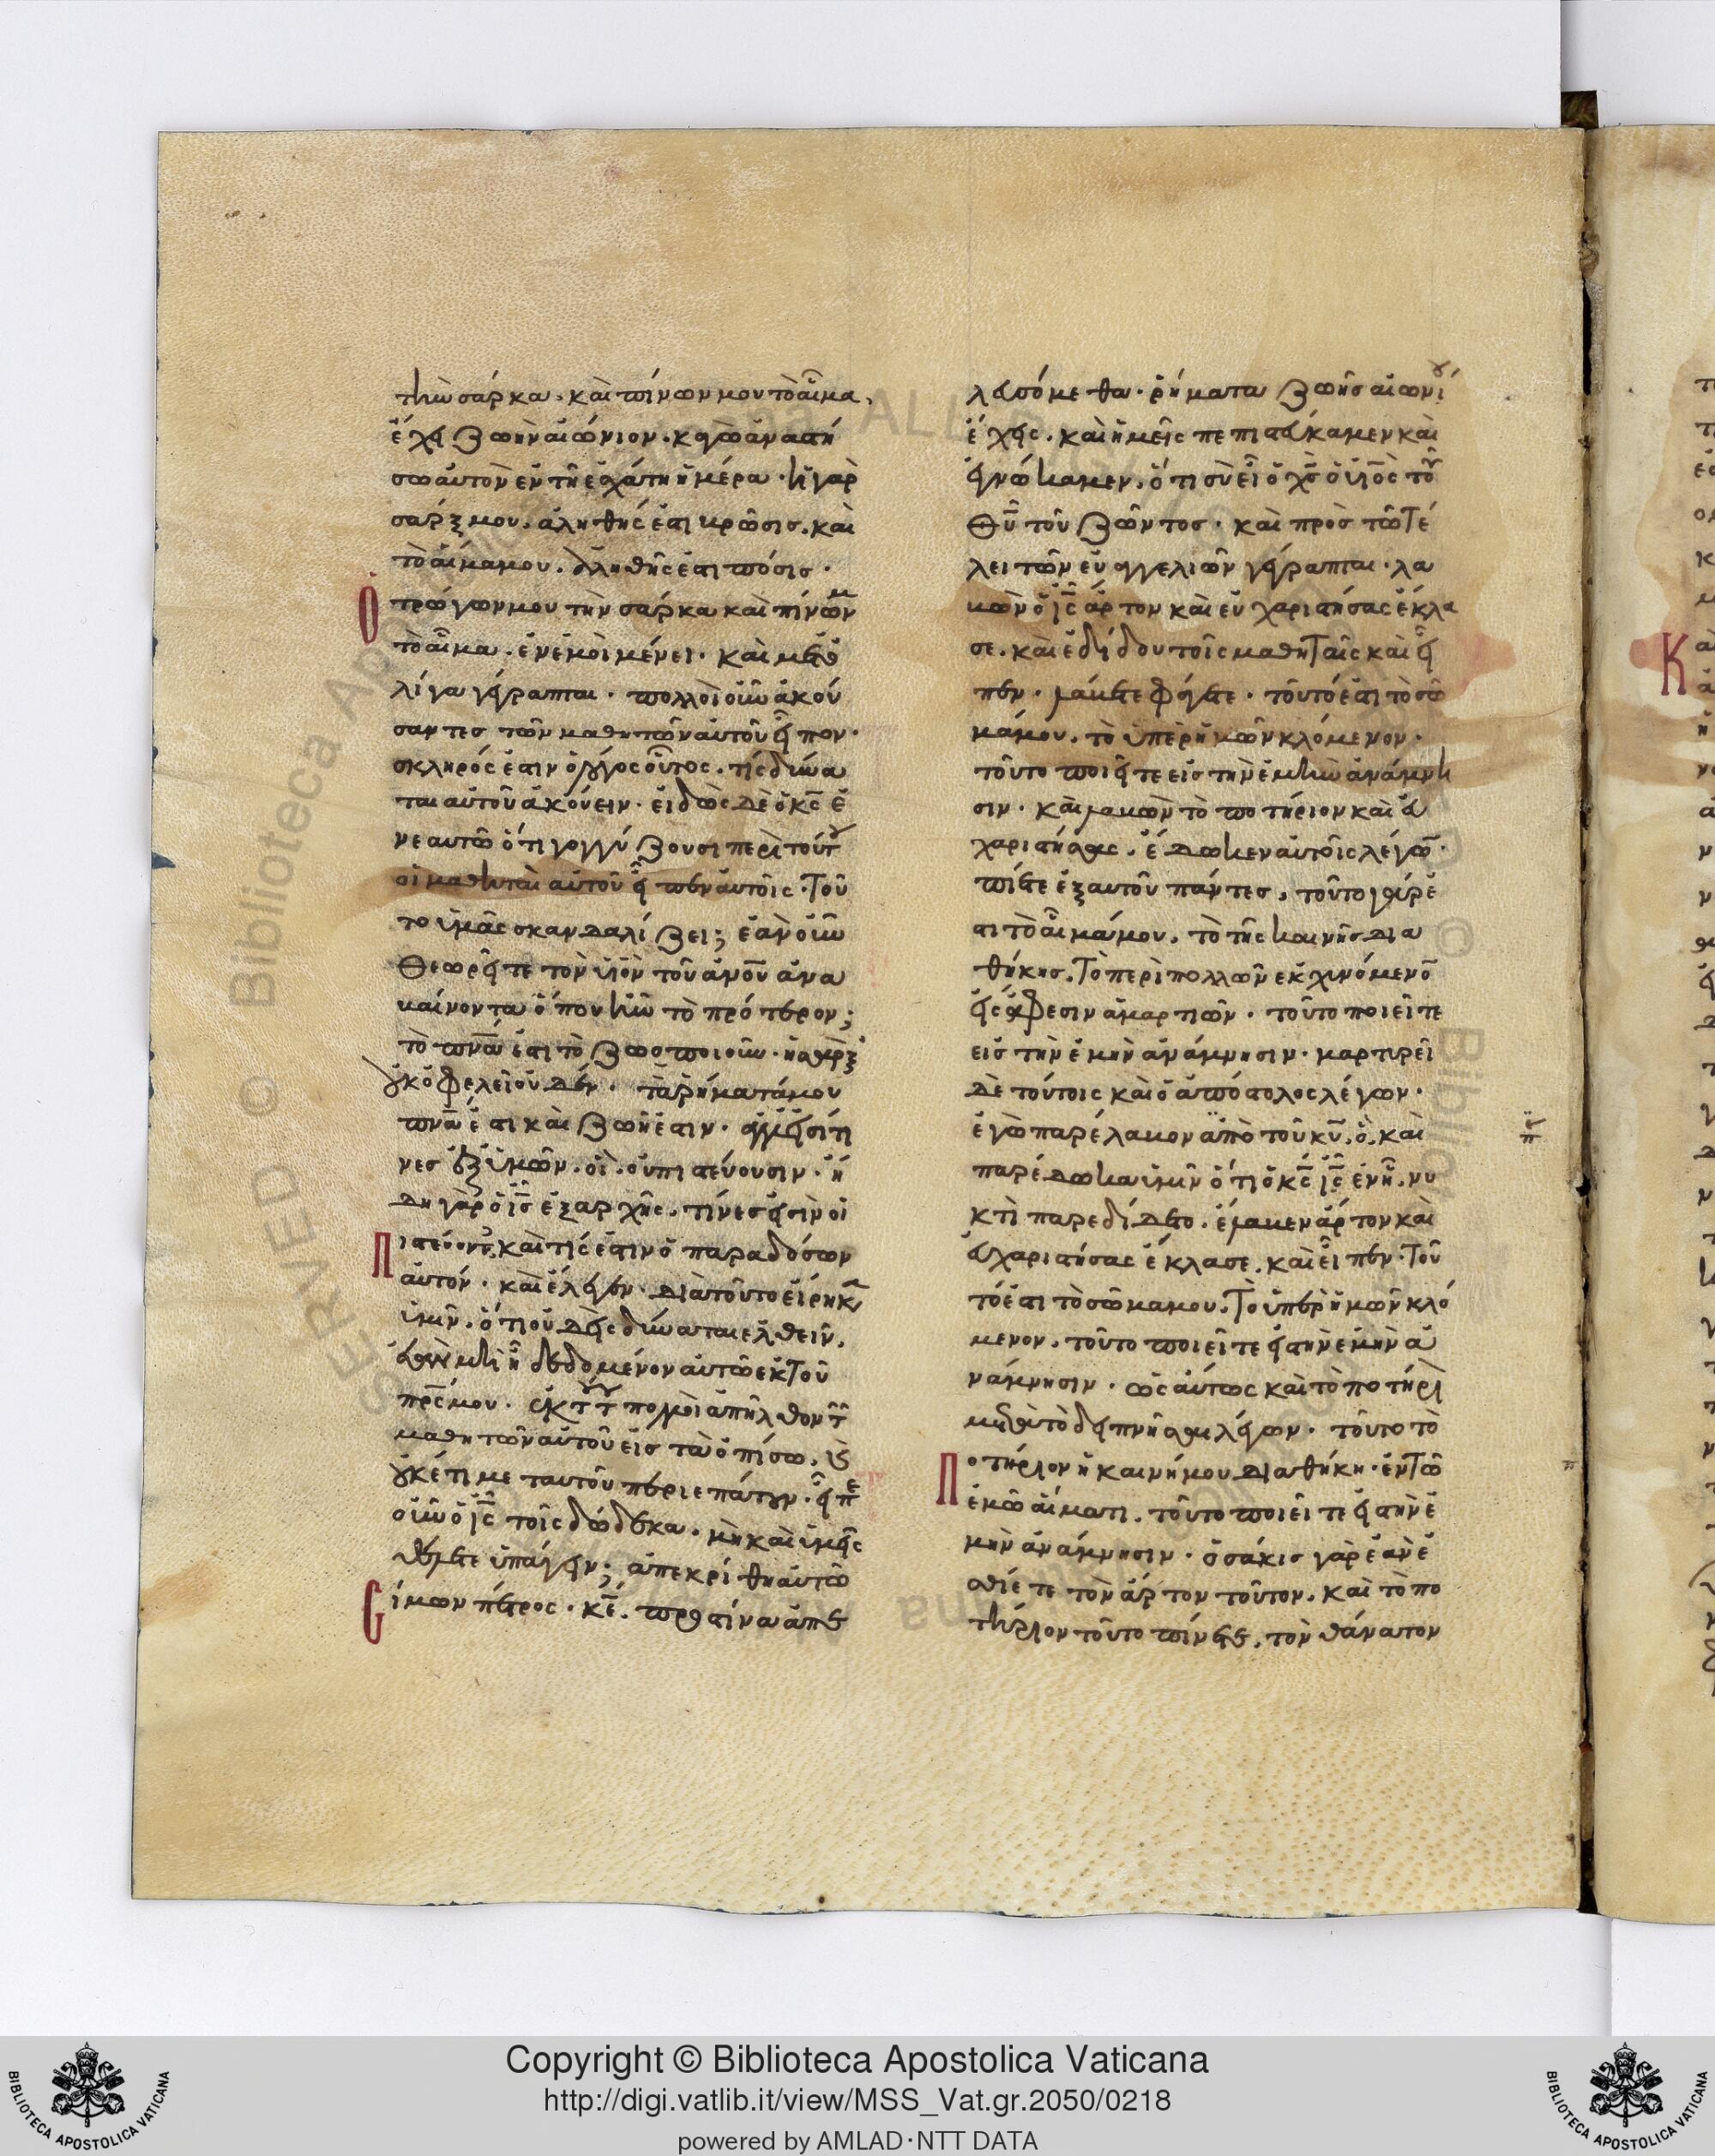 τὴν σάρκα. καὶ πίνων μου τὸ αἷμα,
ἔχει ζωὴν αἰώνιον. κἀγὼ ἀναστή
σω αὐτὸν ἐν τῆ ἐσχάτη ἡμέρα. ἡ γὰρ
σάρξ μου, ἀληθής ἐστι βρῶσις. καὶ
τὸ αἷμά μου, ἀληθῆς ἐστι πόσις.
Ὁ τρώγων μου τὴν σάρκα καὶ πίνων μου
τὸ αἷμα. ἐν ἐμοὶ μένει. καὶ μετ ὀ
λίγα γέγραπται. πολλοὶ οὖν ἀκού
σαντες τῶν μαθητῶν αὐτοῦ εἶπον.
σκληρός ἐστιν ὁ λόγος οὗτος. τίς δύνα
ται αὐτοῦ ἀκούειν. εἰδὼς δὲ ὁ κς ἐ
ν ἑαυτῶ ὅτι γογγύζουσι περὶ τούτου
οἱ μαθηταὶ αὐτοῦ εἶπεν αὐτοῖς. Τοῦ
το ὑμᾶς σκανδαλίζει; ἐὰν οὖν
Θεωρῆτε τὸν υἱὸν τοῦ ἀνου ἀνα
βαίνοντα ὅπου ἦν τὸ πρότερον;
τὸ πνα ἐστι τὸ ζωοποιοῦν. ἡ σὰρξ
οὐκ ὀφελεῖ οὐδέν. τὰ ῥήματά μου
πνα ἐστι καὶ ζωή ἐστιν. ἀλλ εἰσί τι
νες ἐξ ὑμῶν. οἳ οὐ πιστεύουσιν. ἤ
δη γὰρ ὁ ις ἐξαρχῆς, τίνες εἰσὶν οἱ
Πιστεύοντες, καὶ τίς ἐστιν ὁ παραδόσων
αὐτόν. καὶ ἔλεγεν. διατοῦτο εἴρηκα
ὑμῖν, ὅτι οὐδεὶς δύναται ἐλθεῖν,
ἐὰν μὴ ἦ δεδομένον αὐτῶ ἐκ Τοῦ
πρς μου. ἐκ τούτου πολλοὶ ἀπῆλθον τῶν
μαθητῶν αὐτοῦ εἰς τὰ ὀπίσω. καὶ
οὐκέτι μεταυτοῦ περιεπάτουν. εἶπεν
οὖν ὁ ις τοῖς δώδεκα. μὴ καὶ ὑμεῖς
θέλετε ὑπάγειν; ἀπεκρίθη αὐτῶ
Σίμων πέτρος. κε. πρὸς τίνα ἀπε
λευσόμεθα. ῥήματα ζωῆς αἰωνίου
ἔχεις. καὶ ἡμεῖς πεπιστεύκαμεν καὶ
ἐγνώκαμεν, ὅτι σὺ εἶ ὁ χς ὁ υἱὸς τοῦ
Θυ τοῦ ζῶντος. καὶ πρὸς τῶ Τέ
λει τῶν εὐαγγελιῶν γέγραπται. λα
βὼν ὁ ις ἄρτον καὶ εὐχαριστήσας ἔκλα
σε. καὶ ἐδίδου τοῖς μαθηΤαῖς καὶ εἶ
πεν. λάβετε φάγετε. τοῦτό ἐστι τὸ σῶ
μά μου, τὸ ὑπὲρ ἡμῶν κλόμενον.
τοῦτο ποιεῖτε εἰς τὴν ἐμὴν ἀνάμνη
σιν. καὶ λαβὼν τὸ ποτήριον καὶ εὐ
χαριστήσας, ἔδωκεν αὐτοῖς λέγων.
πίετε ἐξ αὐτοῦ πάντες, τοῦτο γάρ ἐ
στι τὸ αἷμά μου, τὸ τῆς καινῆς δια
θήκης. Τὸ περὶ πολλῶν ἐκχυνόμενον
εἰς ἄφεσιν ἁμαρτιῶν. τοῦτο ποιεῖτε
εἰς τὴν ἐμὴν ἀνάμνησιν. μαρτυρεῖ
δὲ τούτοις καὶ ὁ ἀπόστολος λέγων.
ἐγὼ παρέλαβον ἀπὸ τοῦ κυ, ὃ καὶ
παρέδωκα ὑμῖν ὅτι ὁ κς ις ἐν ἧ νυ
κτὶ παρεδίδετο. ἔλαβεν ἄρτον καὶ
εὐχαριστήσας ἔκλασε. καὶ εἶπεν. Τοῦ
τό ἐστι τὸ σῶμα μου. Τὸ ὑπὲρ ἡμῶν κλό
μενον. τοῦτο ποιεῖτε εἰς τὴν ἐμὴν ἀ
νάμνησιν. ὡς αύτως καὶ τὸ ποτήριον
μετὰ τὸ δειπνῆσαι λέγων. τοῦτο τὸ
Ποτήριον ἡ καινή μου διαθήκη. ἐν Τῶ
ἐμῶ αἵματι. τοῦτο ποιεῖτε εἰς τὴν ἐ
μὴν ἀνάμνησιν. ὁσάκις γὰρ ἐὰν ἐ
σθίετε τὸν ἄρτον τοῦτον. καὶ τὸ πο
τήριον τοῦτο πίνετε. τὸν θάνατον
Copyright © Biblioteca Apostolica Vaticana
http://digi.vatlib.it/view/MSS_Vat.gr.2050/0218
powered by AMLAD·NTT DATA
BIBLIOTECA APOSTOLICA VATICANA
BIBLIOTECA APOSTOLICA VATICANA